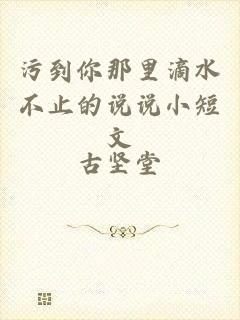 污到你那里滴水
不止的说说小短
文
古坚堂